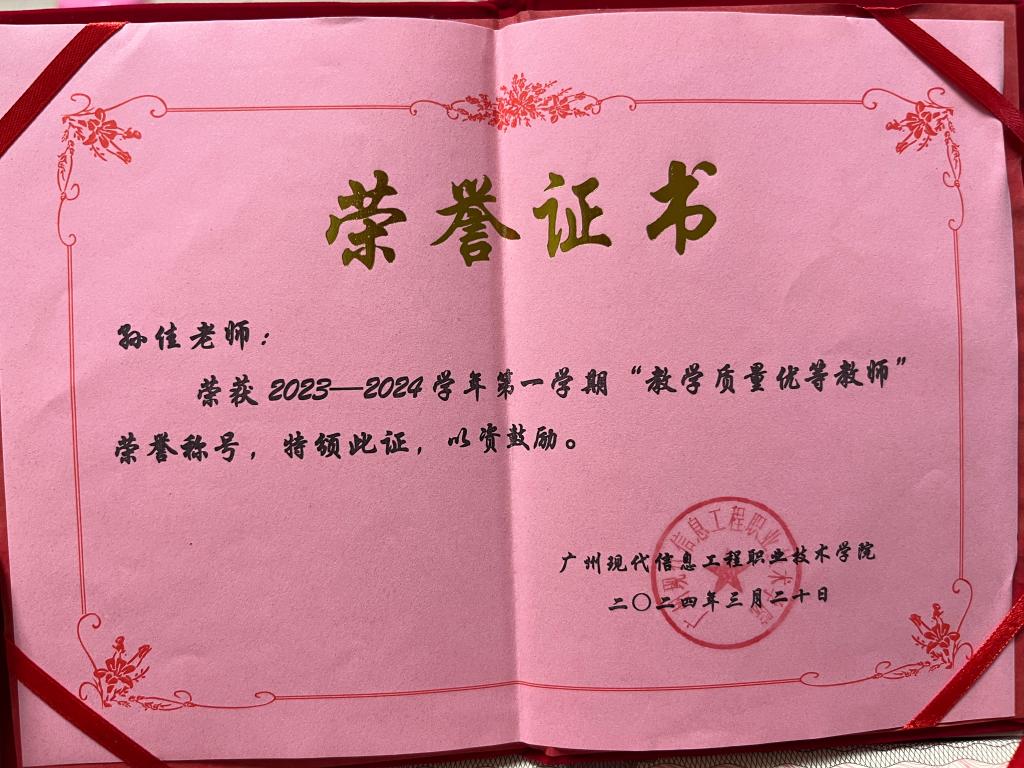 荣誉证书
孙佳老师：
荣获2023—2024学年第一学期“教学质量优等教师”
荣誉称号，特颁此证，以资鼓励。
广州现代信息工程职业技术学院
二〇二四年三月二十日